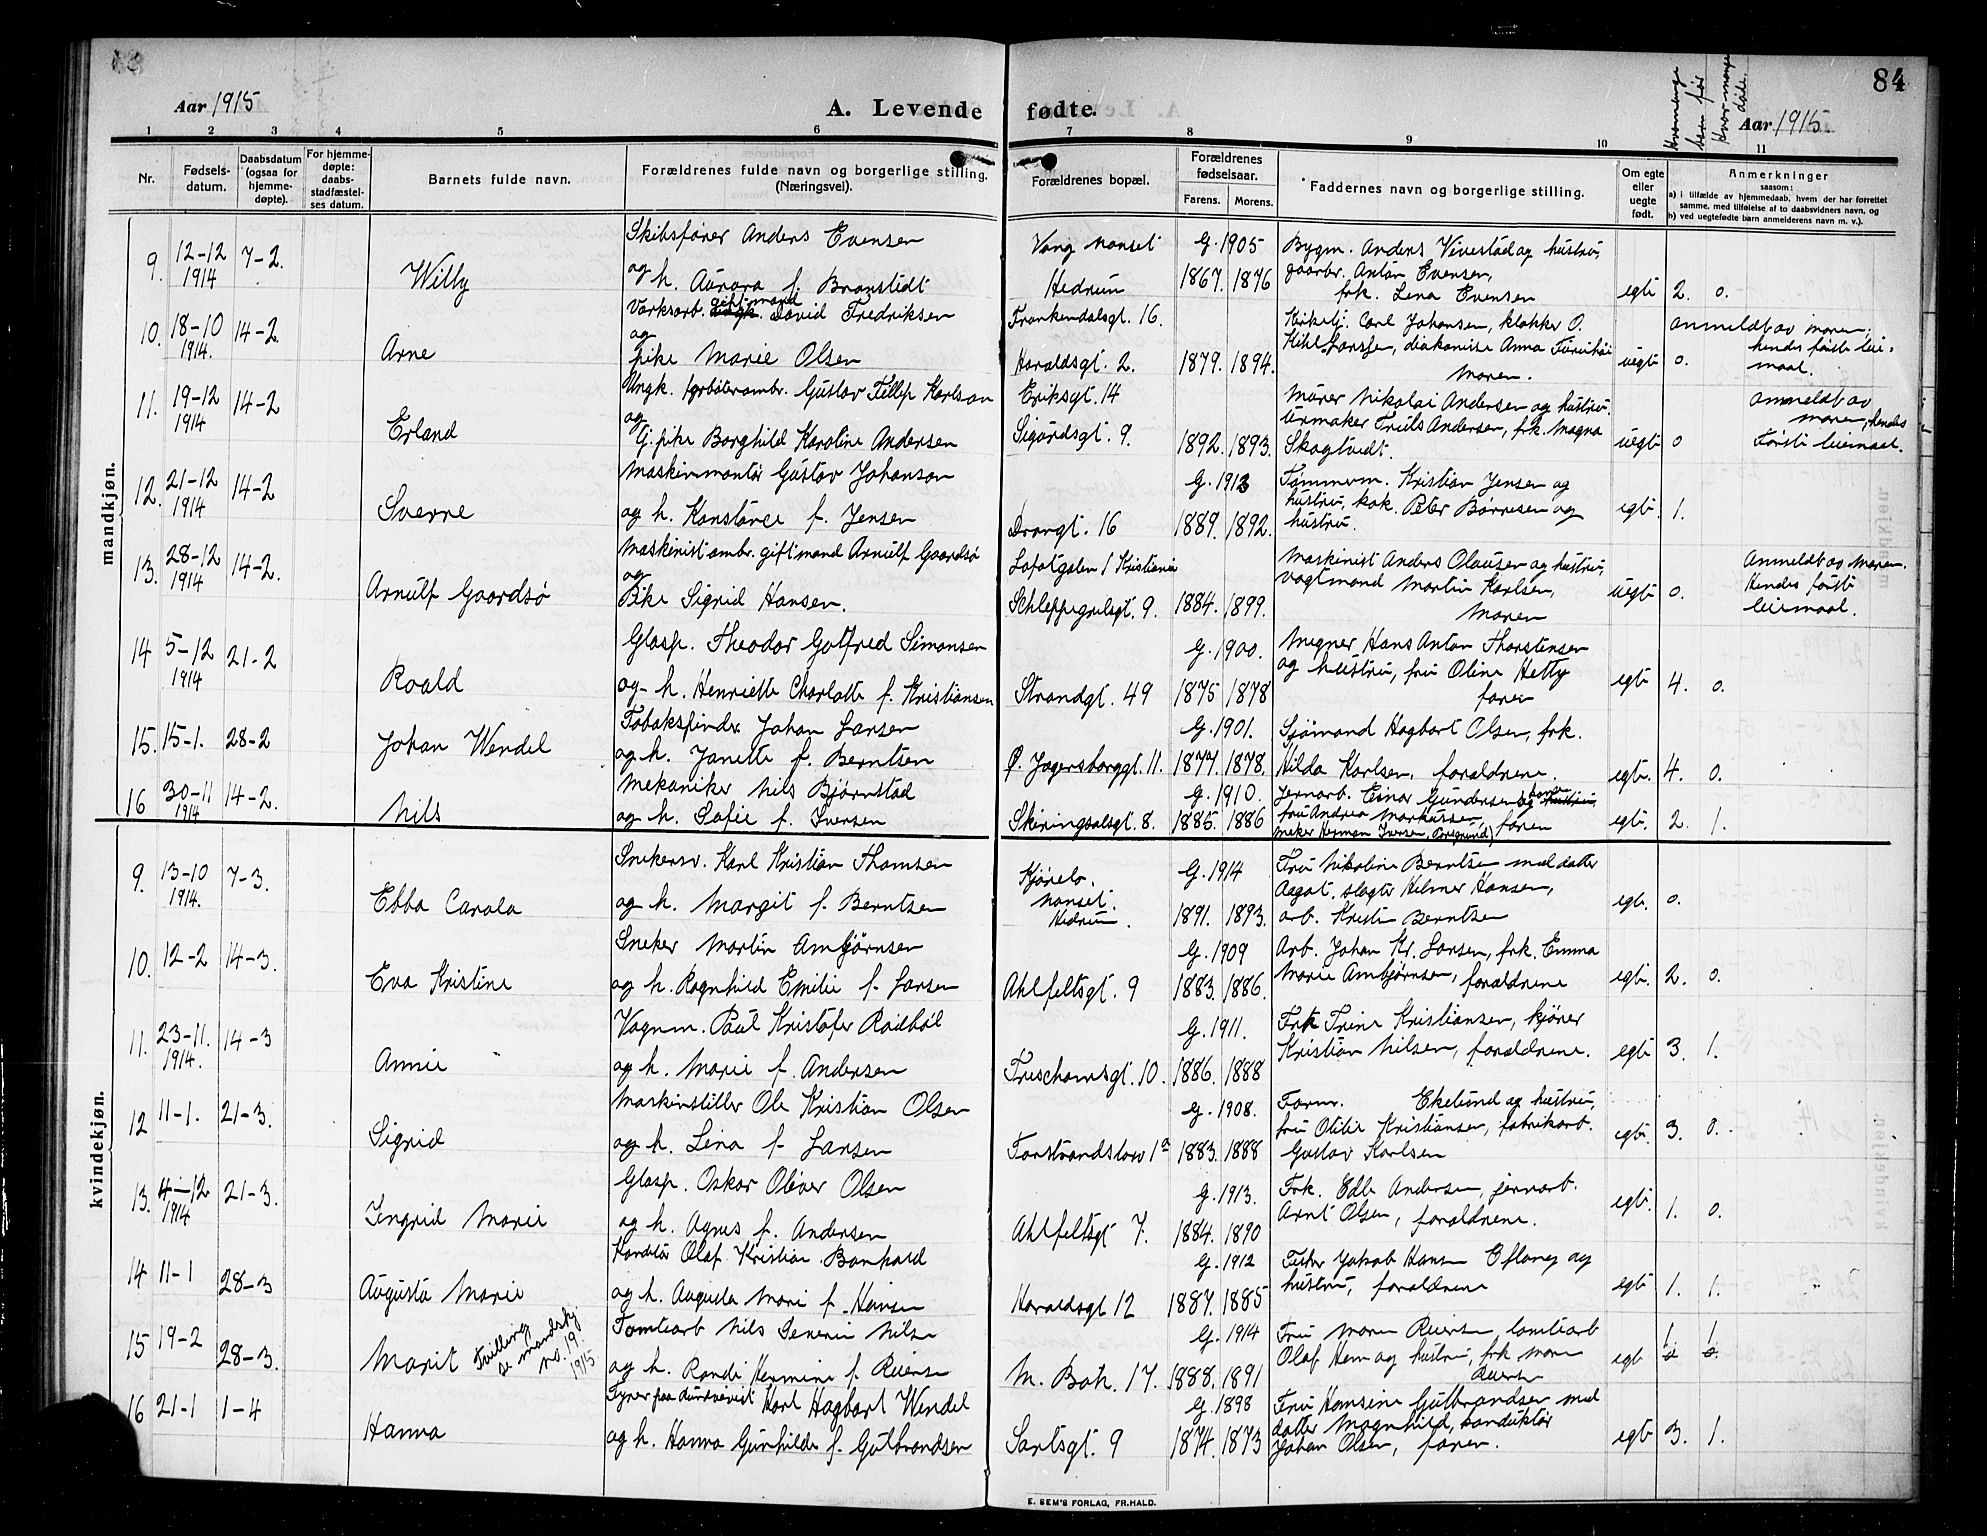 84
Aar 1915
A. Levende fødte.
Hvormange børn før
Hvor mange døde.
Aar 1915.
1 2 3 4 5 6 7 8 9 10 11
Nr. Fødsels-datum. Daabsdatum (ogsaa for hjemme-døpte). For hjemme-døpte: daabs-stadfæstel-ses datum. Barnets fulde navn. Forældrenes fulde navn og borgerlige stilling. (Næringsvei). Forældrenes bopæl. Forældrenes fødselsaar. Farens. Morens. Faddernes navn og borgerlige stilling. Om egte eller uegte født. Anmerkninger saasom:
a) i tilfælde av hjemmedaab, hvem der har forrettet samme, med tilføielse af to daabsvidners navn, og
b) ved uegtefødte børn anmelderens navn m. v.).
mandkjøn.
Skibsfører Anders Evensen G. 1905 Bygm. Anders Vivestad og hustru,
9. 12-12 1914 7-2. Willy og h. Aurora f. Branstedt Hedrum 1867. 1876 gaarbr. Anton Evensen, frk. Lena Evensen egte 2. 0.
Verksarb. gift mand David Fredriksen Frankendalsgt. 16. Kirketj. Carl Johansen, klokker O.
10. 18-10 1914. 14-2. Arne og pike Marie Olsen Haraldsgt. 2. 1879. 1894. diakonisse Anna Moren. uegte 0. anmeldt av moren, hendes første leiemaal.
Ungk. Gustav Fillip Karlson Eriksgt. 14 Murer Nikolai Andersen og hustru.
11. 19-12 1914 14-2 Erland og G. pike Borghild Karoline Andersen Sigurdsgt. 9. 1892. 1893. urmaker Truls Andersen, frk. Magna Skogtvedt. uegte 0 anmeldt av moren, hendes første leiemaal.
Maskinmontør Gustav Johanson G. 1913 Tømmerm. Kristian Jensen og
12. 21-12 1914 14-2 Sverre og h. Konstance f. Jensen Dronngt. 16 1889. 1892. hustru, Peter Børresen og hustru. egte. 1.
Maskinistambr. gift mand Arnulf Gaardsø Kristiania Maskinist Anders Olausen og hustru,
13. 28-12 1914 14-2. Arnulf Gaardsø og Pike Sigrid Hansen. Schleppegrelsgt. 9. 1884. 1899. vogtmand Martin Karlsen, Moren uegte 0. Anmeldt av Moren. Hendes første leiemaal.
Glasp. Theodor Gotfred Simonsen G. 1900. Hans Anton Thorstensen
14 5-12 1914 21-2 Roald og h. Henriette Charlotte f. Kristiansen Strandgt. 49 1875 1878 og hustru, fru Oline Hetty faren egte 4. 0.
Tobakspinder Johan Larsen G. 1901. Sjømand Hagbart Olsen, frk.
15. 15-1. 28-2 Johan Wendel og h. Janette f. Berntsen Ø. Jegersborggt. 11. 1877. 1878. Hilda Karlsen, forældrene. egte. 4. 0.
Mekaniker Nils Bjørnstad G. 1910. Jernarb. Einar Gundersen
16 30-11 1914 14-2. Nils og h. Sofie f. Iversen Skiringsalsgt. 8. 1885. 1886 fru Andrea Markussen, Herman Iversen, Porsgrund) faren egte. 2. 1.
kvindekjøn.
Snekersv. Karl Kristian Thomsen Nanset. Hedrum. G. 1914 Fru Nikoline Berntsen med datter
9. 13-10 1914. 7-3. Ebba Carola og h. Margit f. Berntsen 1891. 1893. Aagot, slagter Hilmer Hansen, arb. Kristen Berntsen egte. 0.
Sneker Martin Ambjørnsen G. 1909 Arb. Johan Kr. Larsen, frk. Emma
10. 12-2 14-3. Eva Kristine og h. Ragnhild Emilie f. Larsen Ahlfeltsgt. 9 1883. 1886. Marie Ambjørnsen, forældrene egte. 2. 0.
Vognm. Paul Kristofer Rødbøl G. 1911. Frk Trine Kristiansen, kjører
11. 23-11. 1914. 14-3 Annie og h. Marie f. Andersen 10. 1886. 1888 Kristian Nilsen, forældrene. egte 3. 1.
Maskinstiller Ole Kristian Olsen G. 1908. Form. Ekelund og hustru,
12 11-1. 21-3. Sigrid og h. Lina f. Larsen 1a 1883. 1888 fru Otilie Kristiansen, fabrikarb. Gustav Karlsen egte. 3. 0.
Glasp. Oskar Oliver Olsen G. 1913. Frk. Edle Andersen, jernarb.
13. 4-12 1914 21-3. Ingrid Marie og h. Agnes f. Andersen Ahlfeltsgt 7. 1884. 1890 Arnt Olsen, forældrene. egte. 1. 0.
Olaf Kristian Bonhard G. 1912 Jakob Hansen og
14 11-1 28-3 Augusta Marie og h. Augusta Marie f. Hansen Haraldsgt 12 1887. 1885 hustru, forældrene egte 1. 1.
Tomtearb Nils Severin Nilsen G. 1914 Fru Maren Riersen tomtearb
15 19-2 28-3. Marit Tvilling se mandskj. no. 19. 1915 og h. Randi Hermine f. Riersen M. Bak. 17. 1888. 1891 Olaf Hem og hustru, frk Maren Riersen egte 1. 1.
Karl Hagbart Wendel G. 1898 Fru Hansine Gulbrandsen med
16 21-1 1-4 Hanna og h. Hanna Gunhilde f. Gulbrandsen 9 1874. 1873 datter Magnhild, konduktør Johan Olsen, faren. egte 3. 1.
E. SEM'S FORLAG, FR.HALD.